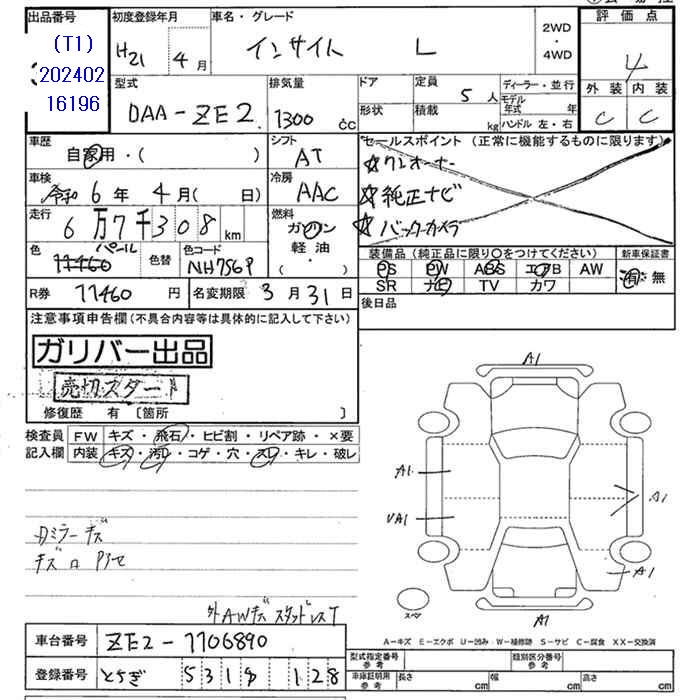 出品番号
(T1)
202402
16196
初度登録年月
H21 4月
車名・グレード
インサイト L
2WD
・
4WD
評価点
4
外装 内装
C C
型式
DAA-ZE2
排気量
1300 cc
ドア
形状
定員
5人
積載
kg
ディーラー・並行
モデル年式 年
ハンドル 左・右
車歴
自家用・( )
シフト
AT
セールスポイント (正常に機能するものに限ります)
☆ワンオーナー
☆純正ナビ
☆バックカメラ
車検
令和 6年 4月( 日)
冷房
AAC
走行
6万7千308km
燃料
ガソリン
軽油・
・
色
パール
色替
色コード
NH756P
装備品 (純正品に限り○をつけてください)
PS PW ABS エアB AW
SR ナビ TV カワ
新車保証書
有・無
R券 11460円
名変期限 3月31日
後日品
注意事項申告欄(不具合内容等は具体的に記入して下さい)
ガリバー出品
売切スタート
修復歴 有 〔箇所 〕
検査員
記入欄
FW キズ・飛石・ヒビ割・リペア跡・×要
内装 キズ・汚レ・コゲ・穴・スレ・キレ・破レ
ミラーキズ
キズロ Pアセ
外AWキズ スタッドレスT
A1
A1
UA1
A1
A1
A1
スペア
A-キズ E-エクボ U-凹み W-補修跡 S-サビ C-腐食 XX-交換済
車台番号 ZE2-1106890
登録番号 とちぎ 531 す 128
型式指定番号
参考
類別区分番号
参考
車庫証明用
参考
長さ cm
幅 cm
高さ cm